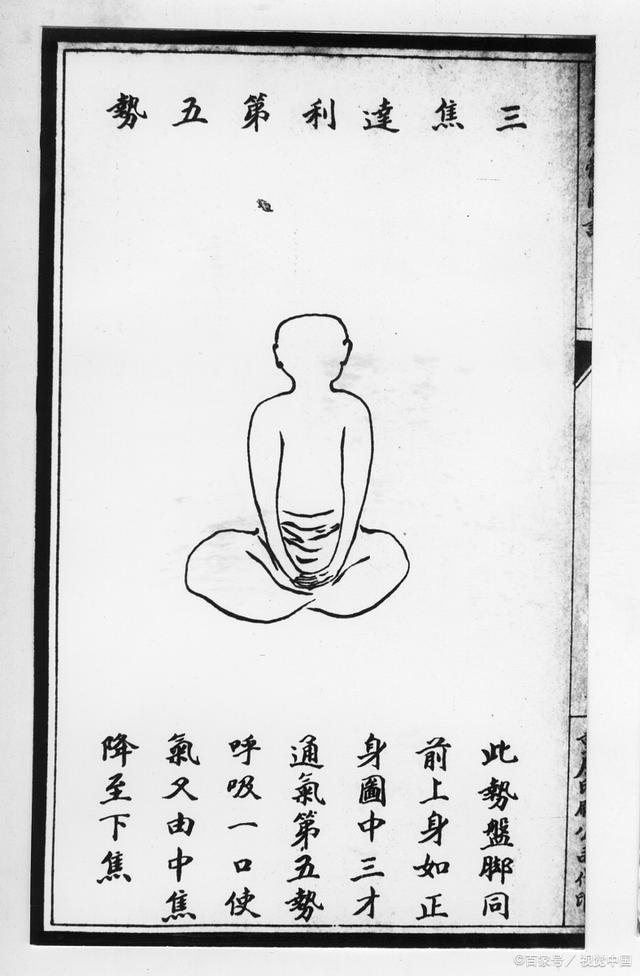 三焦達利第五勢
此勢盤脚同
前上身如正
身圖中三才
通氣第五勢
呼吸一口使
氣又由中焦
降至下焦
©百家号／视觉中国